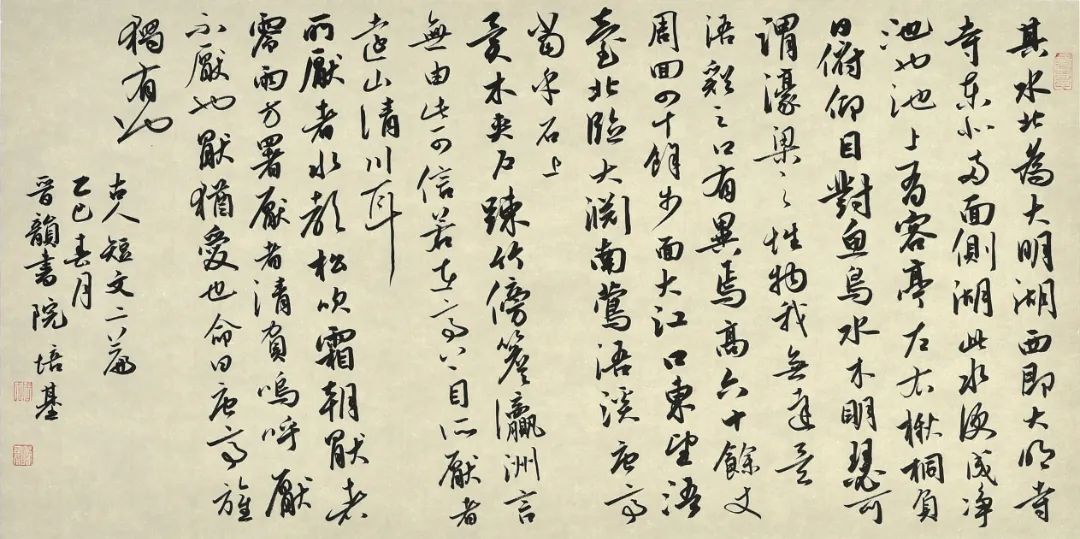 其水北為大明湖西即大明寺
寺東北兩面側湖此水便成净
池也池上有客亭左右楸桐負
日俯仰目對魚鳥水木明瑟可
謂濠梁之性物我無違矣
浯谿之口有異焉高六十餘丈
周回四十餘步面大江口東望浯
臺北臨大淵南浯溪唐高
當乎石上
異木夾户疎竹傍簷瀛洲言
無由此可信若在高上目所厭者
遠山清川耳
所厭者水聲松吹霜朝厭者
雨方署厭者清嗚呼厭
不厭也厭猶愛也命曰唐高旌
獨有也
古人短文二篇
乙巳春月
晋韻書院培基